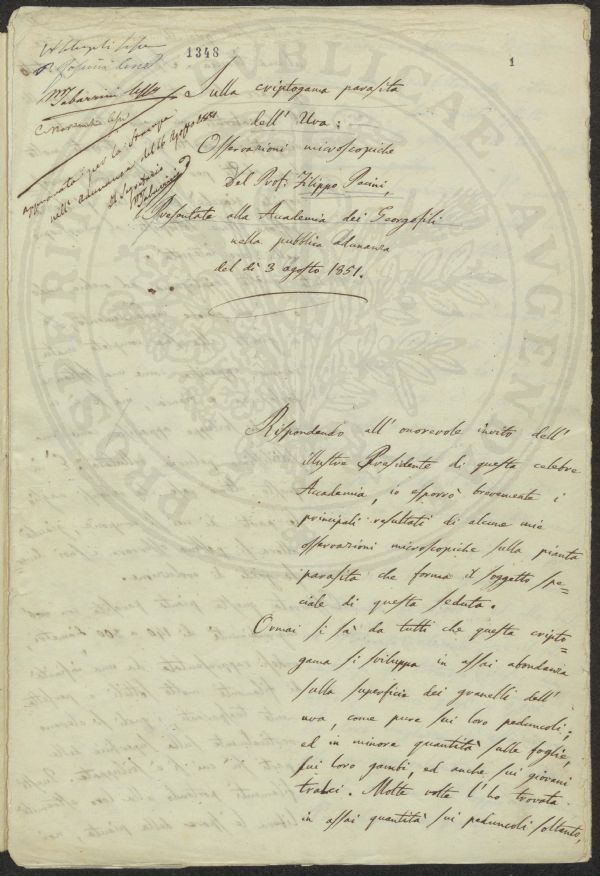 1348
1
Sulla criptogama parasita
dell' Uva:
Osservazioni microscopiche
del Prof: Filippo Pacini,
Presentate alla Accademia dei Georgofili
nella pubblica adunanza
del dì 3 agosto 1851.
approvata per la stampa
nell' adunanza del
Il Segretario
Rispondendo all' onorevole invito dell'
illustre Presidente di questa celebre
Accademia, io esporrò brevemente i
principali resultati di alcune mie
osservazioni microscopiche sulla pianta
parasita che forma il soggetto spe=
ciale di questa seduta.
Ormai si sà da tutti che questa cripto=
gama si sviluppa in assai abondanza
sulla superficie dei granelli dell'
uva, come pure sui loro peduncoli;
ed in minore quantità sulle foglie,
sui loro gambi, ed anche sui giovani
tralci. Molte volte l'ho trovata
in assai quantità sui peduncoli soltanto,